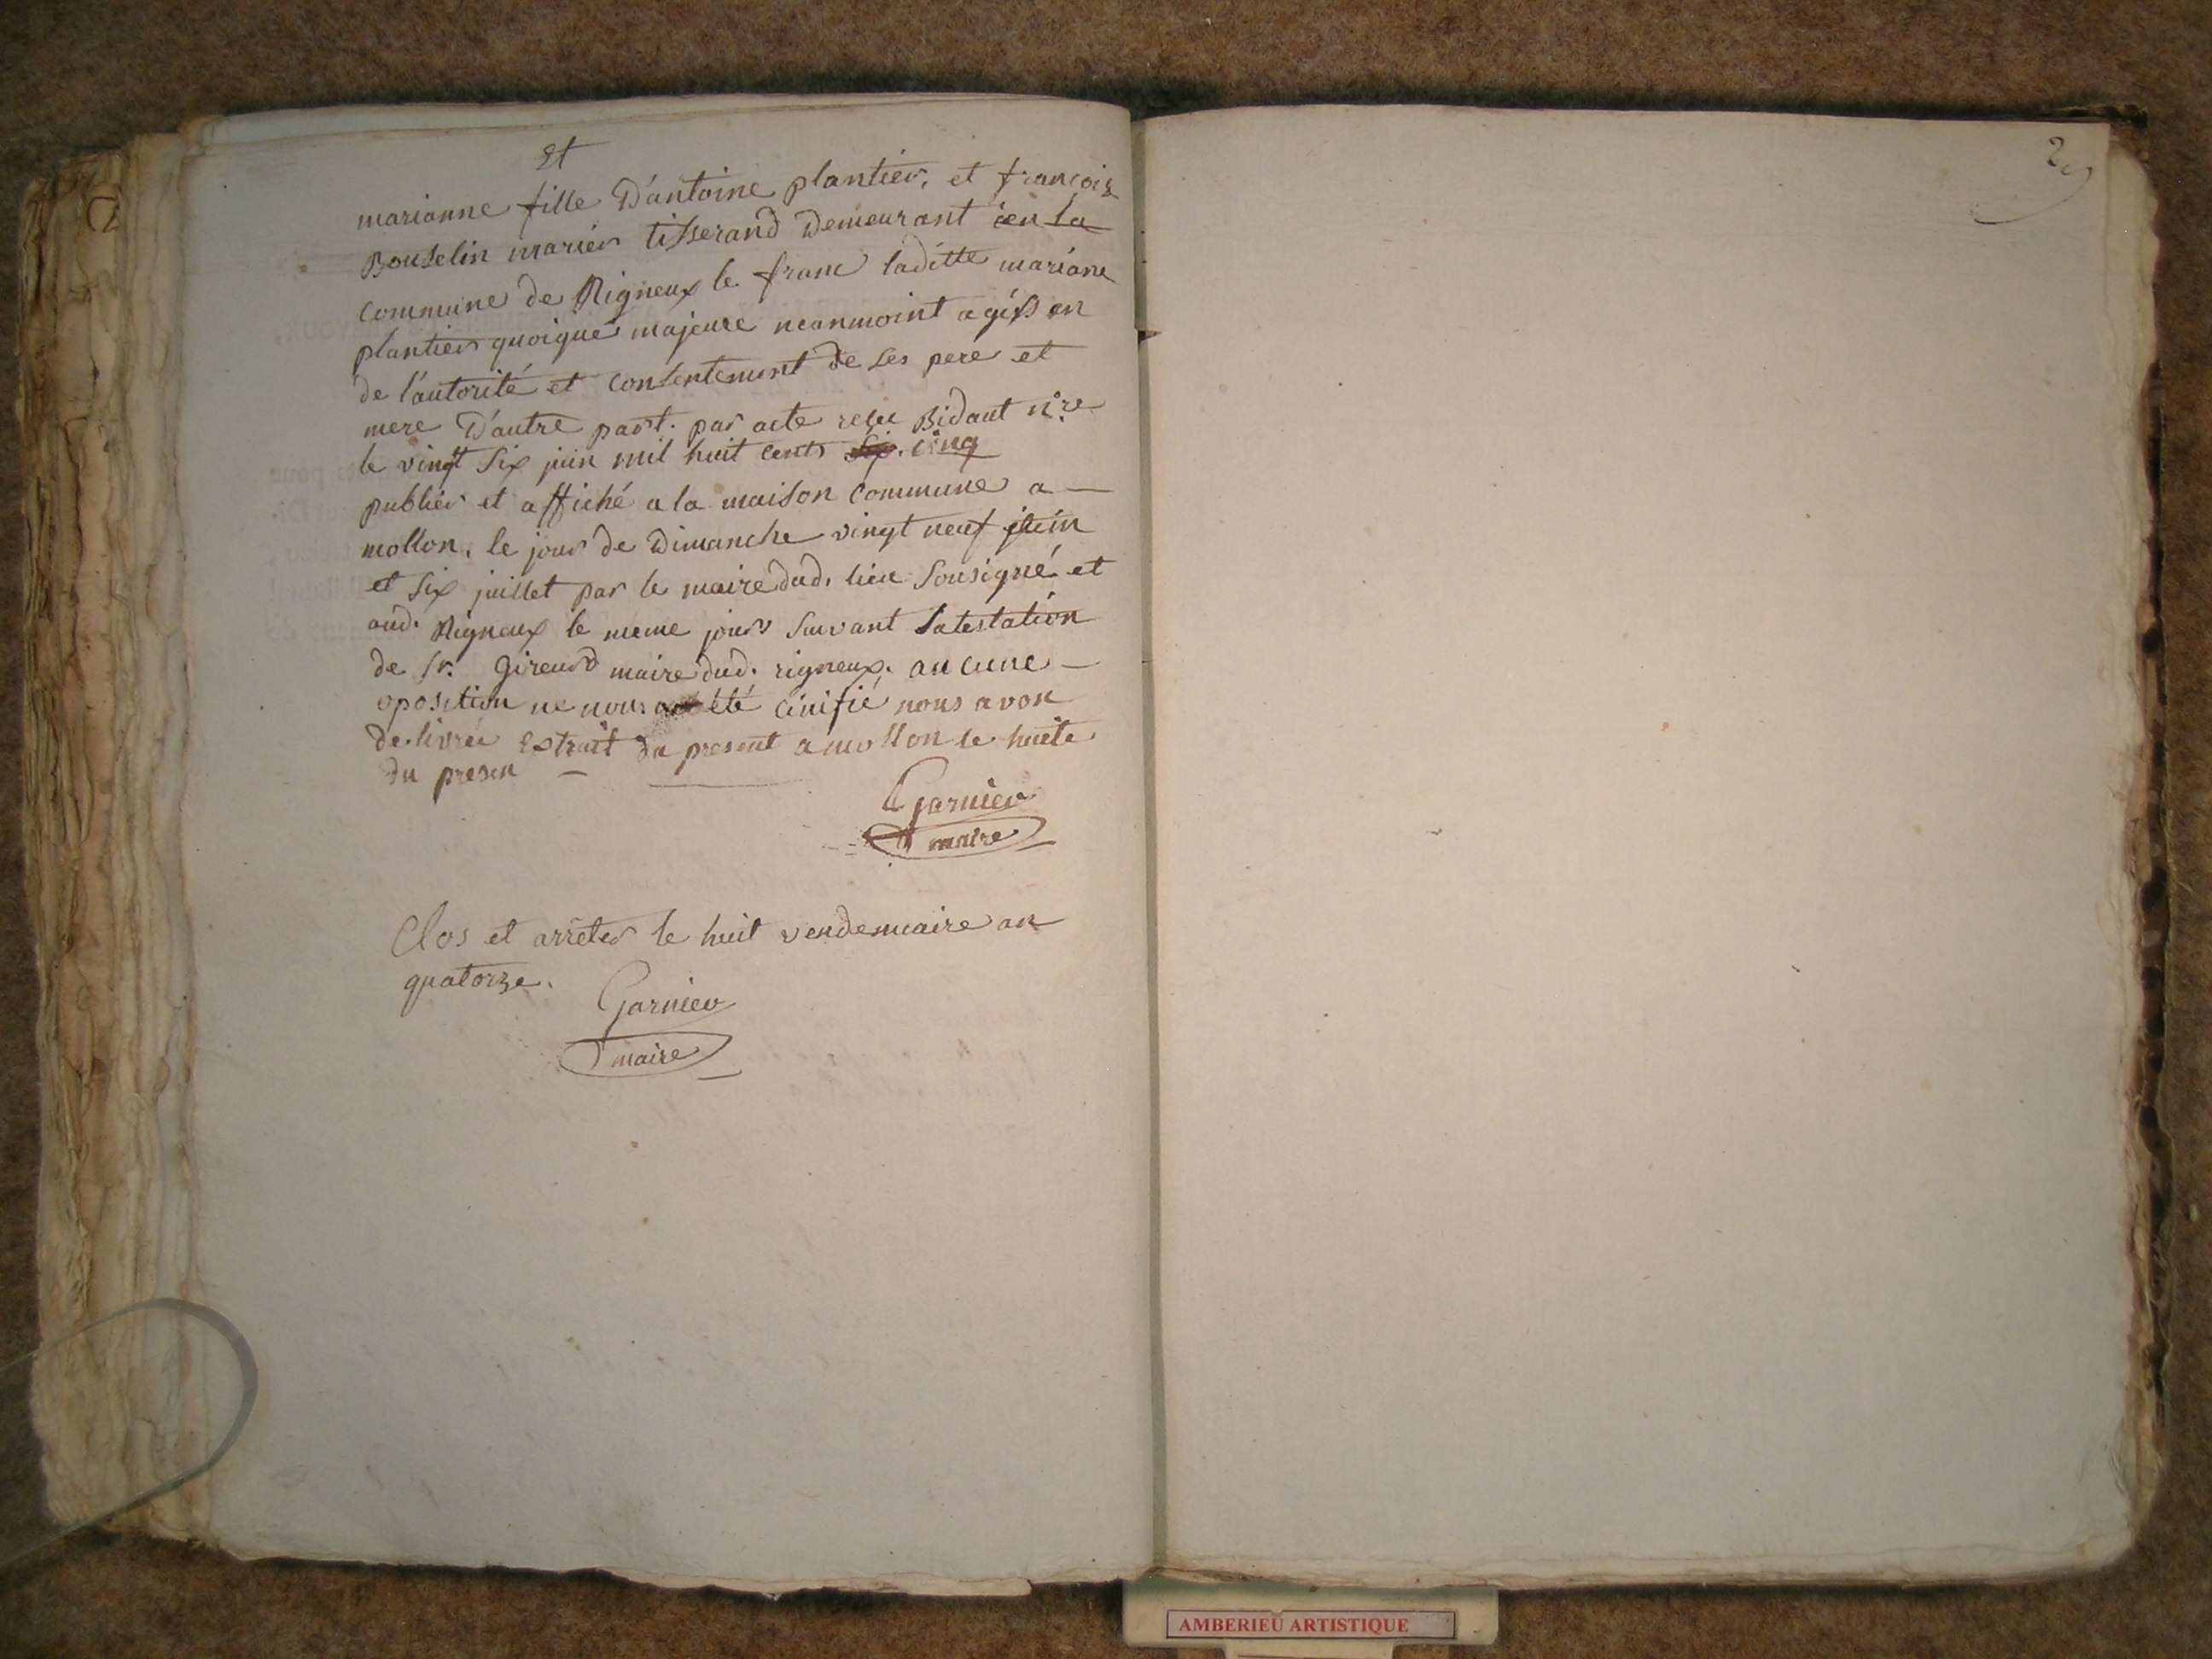 Et
marianne fille D'antoine plantier, et françois
Bouselin mariés tisserand Demeurant en la
commune de Rigneux le franc laditte mariane
plantier quoique majeure neanmoint agiss en
de l'autorité et consentement de ses pere et
mere D'autre part. par acte reçu Bidaut n.re
le vingt six juin mil huit cents six. cinq
publier et affiché a la maison commune a —
mollon, le jour de Dimanche vingt neuf juin
et six juillet par le maire dud. lieu sousigné et
aud. Rigneux le meme jour suivant latestation
de sr. Gireud maire dud. rigneux. aucune —
oposition ne nous a été cinifié nous avon
delivrée extrait du present a mollon le huite
du presen —
Garnier
maire
Clos et arrêter le huit vendemiaire an
quatorze.
Garnier
maire
AMBERIEU ARTISTIQUE